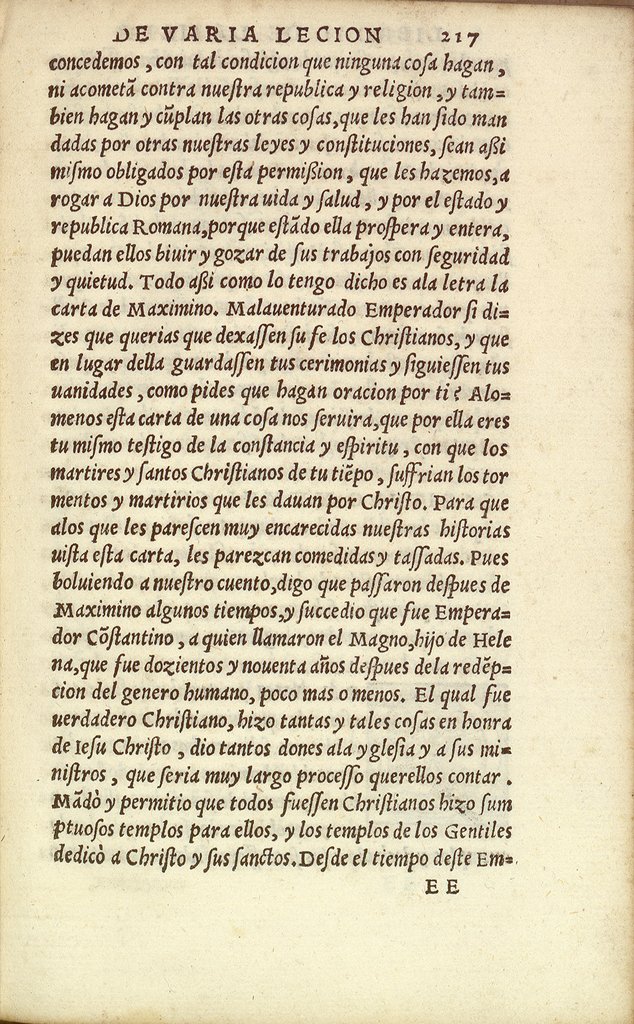 DE VARIA LECION 217
concedemos, con tal condicion que ninguna coſa hagan,
ni acometã contra nueſtra republica y religion, y tam=
bien hagan y cũplan las otras coſas, que les han ſido man
dadas por otras nueſtras leyes y conſtituciones, ſean aßi
miſmo obligados por eſta permißion, que les hazemos, a
rogar a Dios por nueſtra uida y ſalud, y por el eſtado y
republica Romana, porque eſtãdo ella proſpera y entera,
puedan ellos biuir y gozar de ſus trabajos con ſeguridad
y quietud. Todo aßi como lo tengo dicho es ala letra la
carta de Maximino. Malauenturado Emperador ſi di=
zes que querias que dexaſſen ſu fe los Chriſtianos, y que
en lugar della guardaſſen tus cerimonias y ſiguieſſen tus
uanidades, como pides que hagan oracion por ti? Alo=
menos eſta carta de una coſa nos ſeruira, que por ella eres
tu miſmo teſtigo de la conſtancia y eſpiritu, con que los
martires y ſantos Chriſtianos de tu tiẽpo, ſuffrian los tor
mentos y martirios que les dauan por Chriſto. Para que
alos que les pareſcen muy encarecidas nueſtras hiſtorias
uiſta eſta carta, les parezcan comedidas y taſſadas. Pues
boluiendo a nueſtro cuento, digo que paſſaron deſpues de
Maximino algunos tiempos, y ſuccedio que fue Empera=
dor Cõſtantino, a quien llamaron el Magno, hijo de Hele
na, que fue dozientos y nouenta años deſpues dela redẽp=
cion del genero humano, poco mas o menos. El qual fue
uerdadero Chriſtiano, hizo tantas y tales coſas en honra
de Ieſu Chriſto, dio tantos dones ala ygleſia y a ſus mi=
niſtros, que ſeria muy largo proceſſo querellos contar.
Mãdò y permitio que todos fueſſen Chriſtianos hizo ſum
ptuoſos templos para ellos, y los templos de los Gentiles
dedicò a Chriſto y ſus ſanctos. Deſde el tiempo deſte Em=
E E